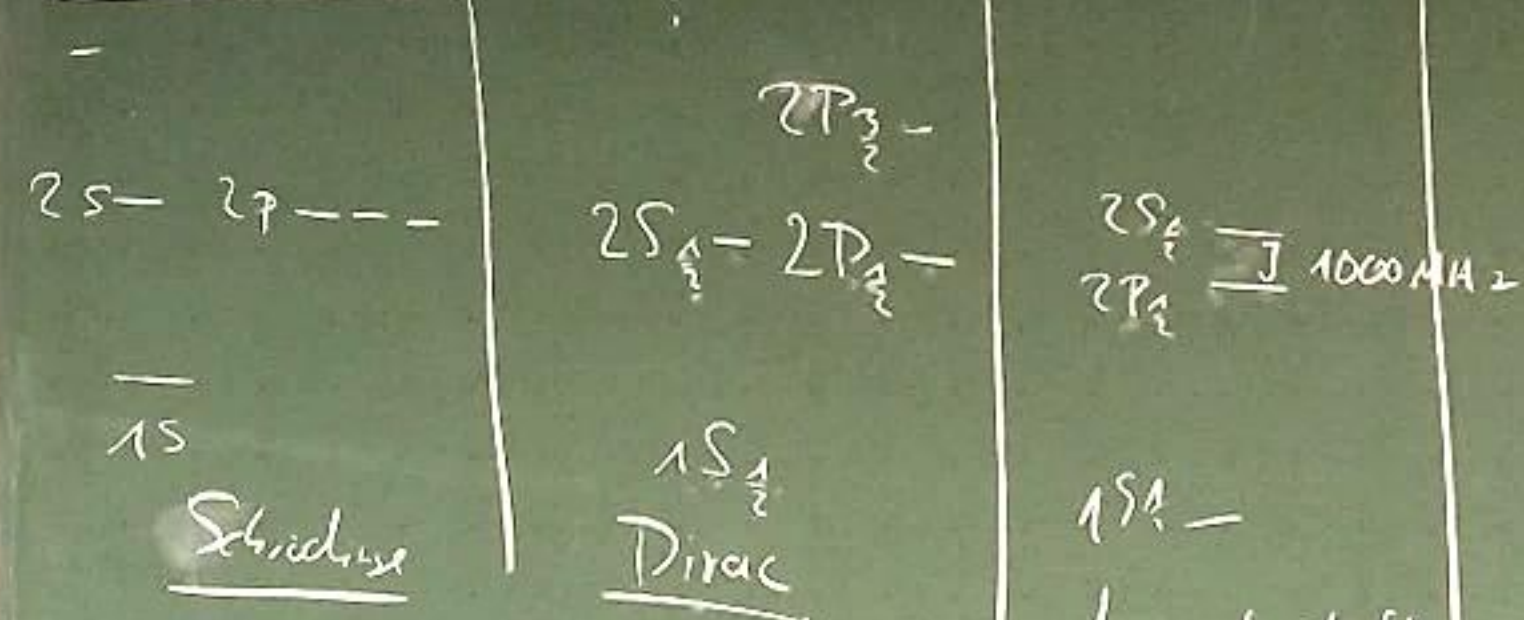 2s— 2p — — —
1S
Schrödinger
2P 3/2 –
2S 1/2 – 2P 1/2 –
1S 1/2
Dirac
2S 1/2
2P 1/2
] 1000 MHz
1S 1/2 —